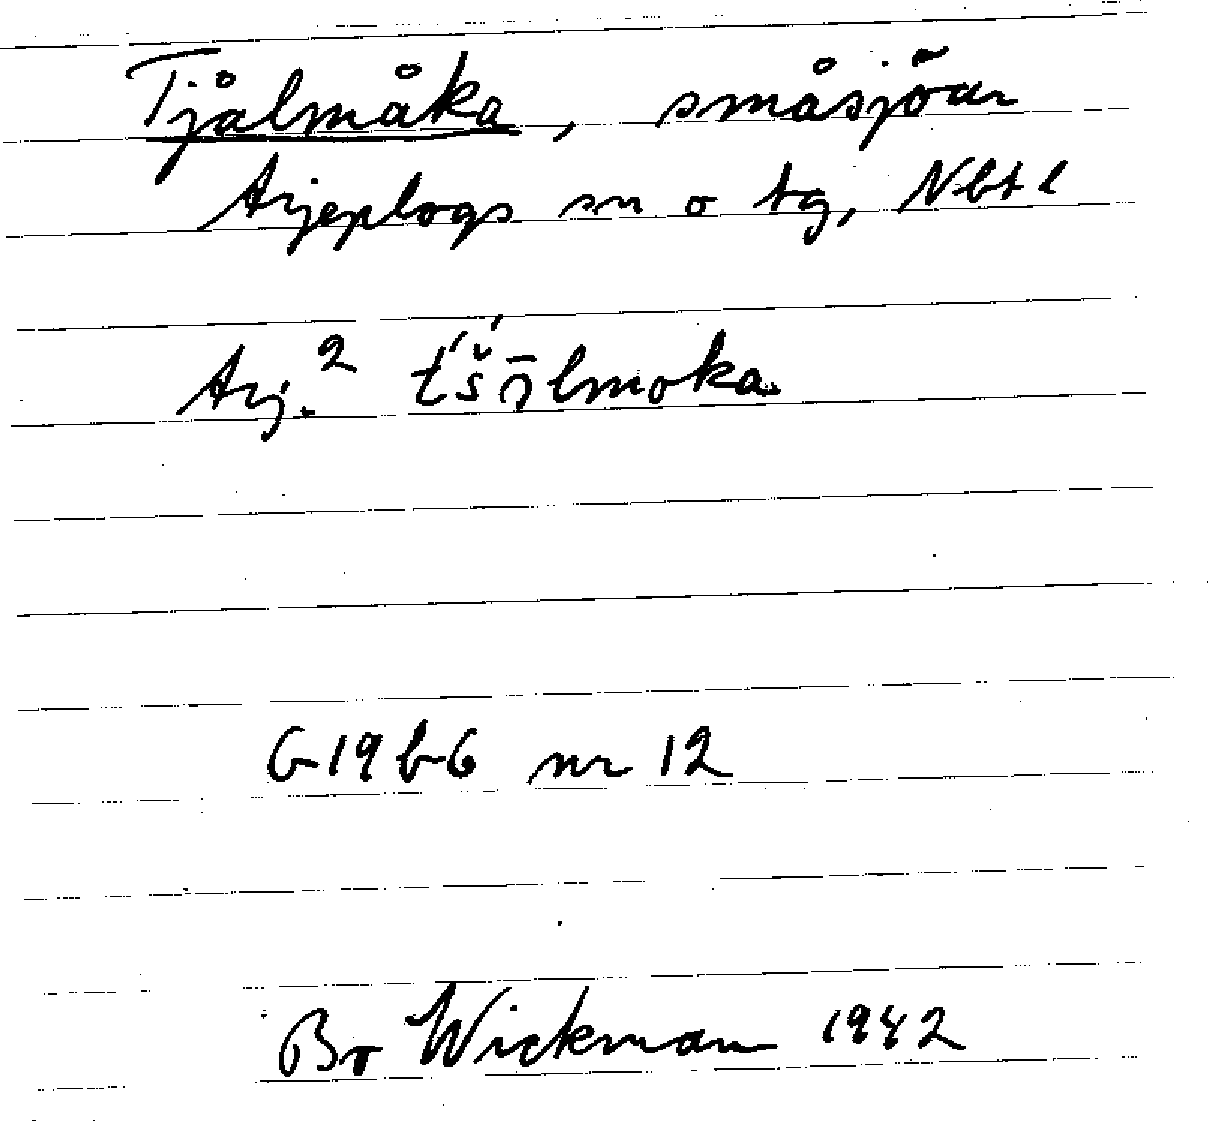 Tjålmåka, småsjöar
Arjeplogs sn o tg, Nbtl
Arj.2
G 19 b6 nr 12
Bo Wickman 1942